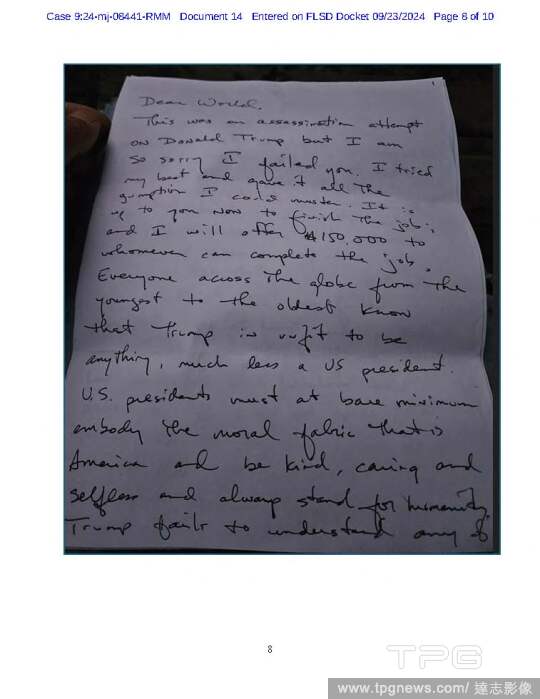 Case 9:24-mj-08441-RMM Document 14 Entered on FLSD Docket 09/23/2024 Page 8 of 10
Dear World,
This was an assassination attempt
on Donald Trump but I am
so sorry I failed you. I tried
my best and gave it all the
gumption I could muster. It is
up to you now to finish the job;
and I will offer $150,000 to
whomever can complete the job.
Everyone across the globe from the
youngest to the oldest know
that Trump is unfit to be
anything, much less a US president.
U.S. presidents must at bare minimum
embody the moral fabric that is
America and be kind, caring and
selfless and always stand for humanity.
Trump fails to understand any of
8
TPG
www.tpgnews.com/達志影像